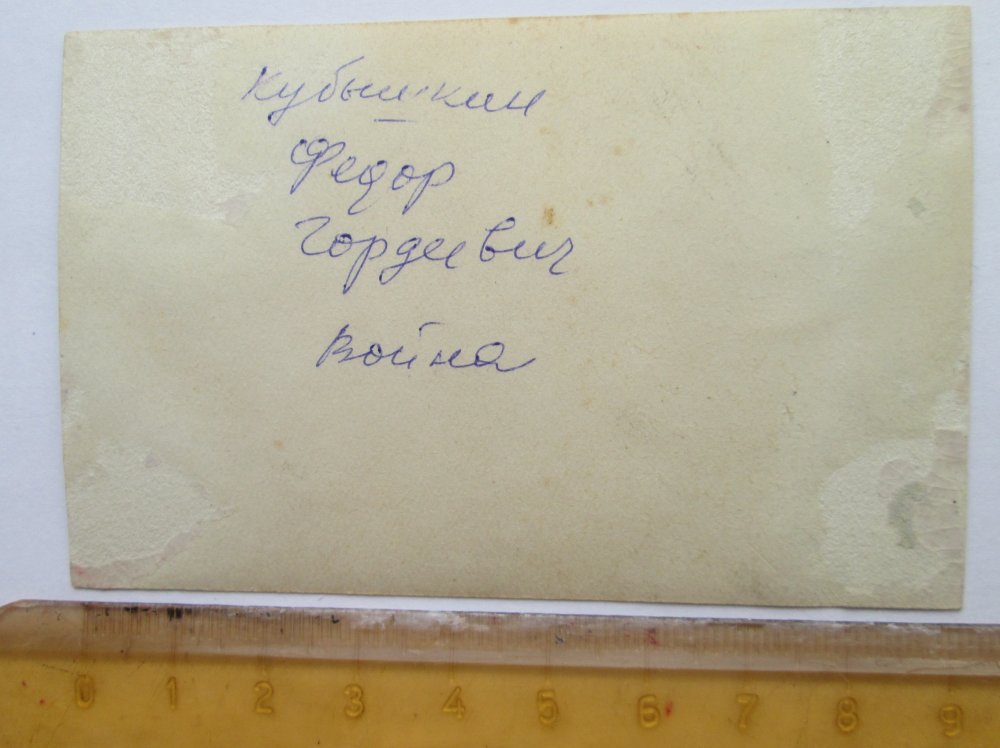 Кубышкин
Федор
Гордеевич
Война
0 1 2 3 4 5 6 7 8 9